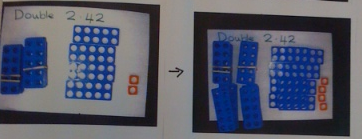 Double 2.42
Double 2.42